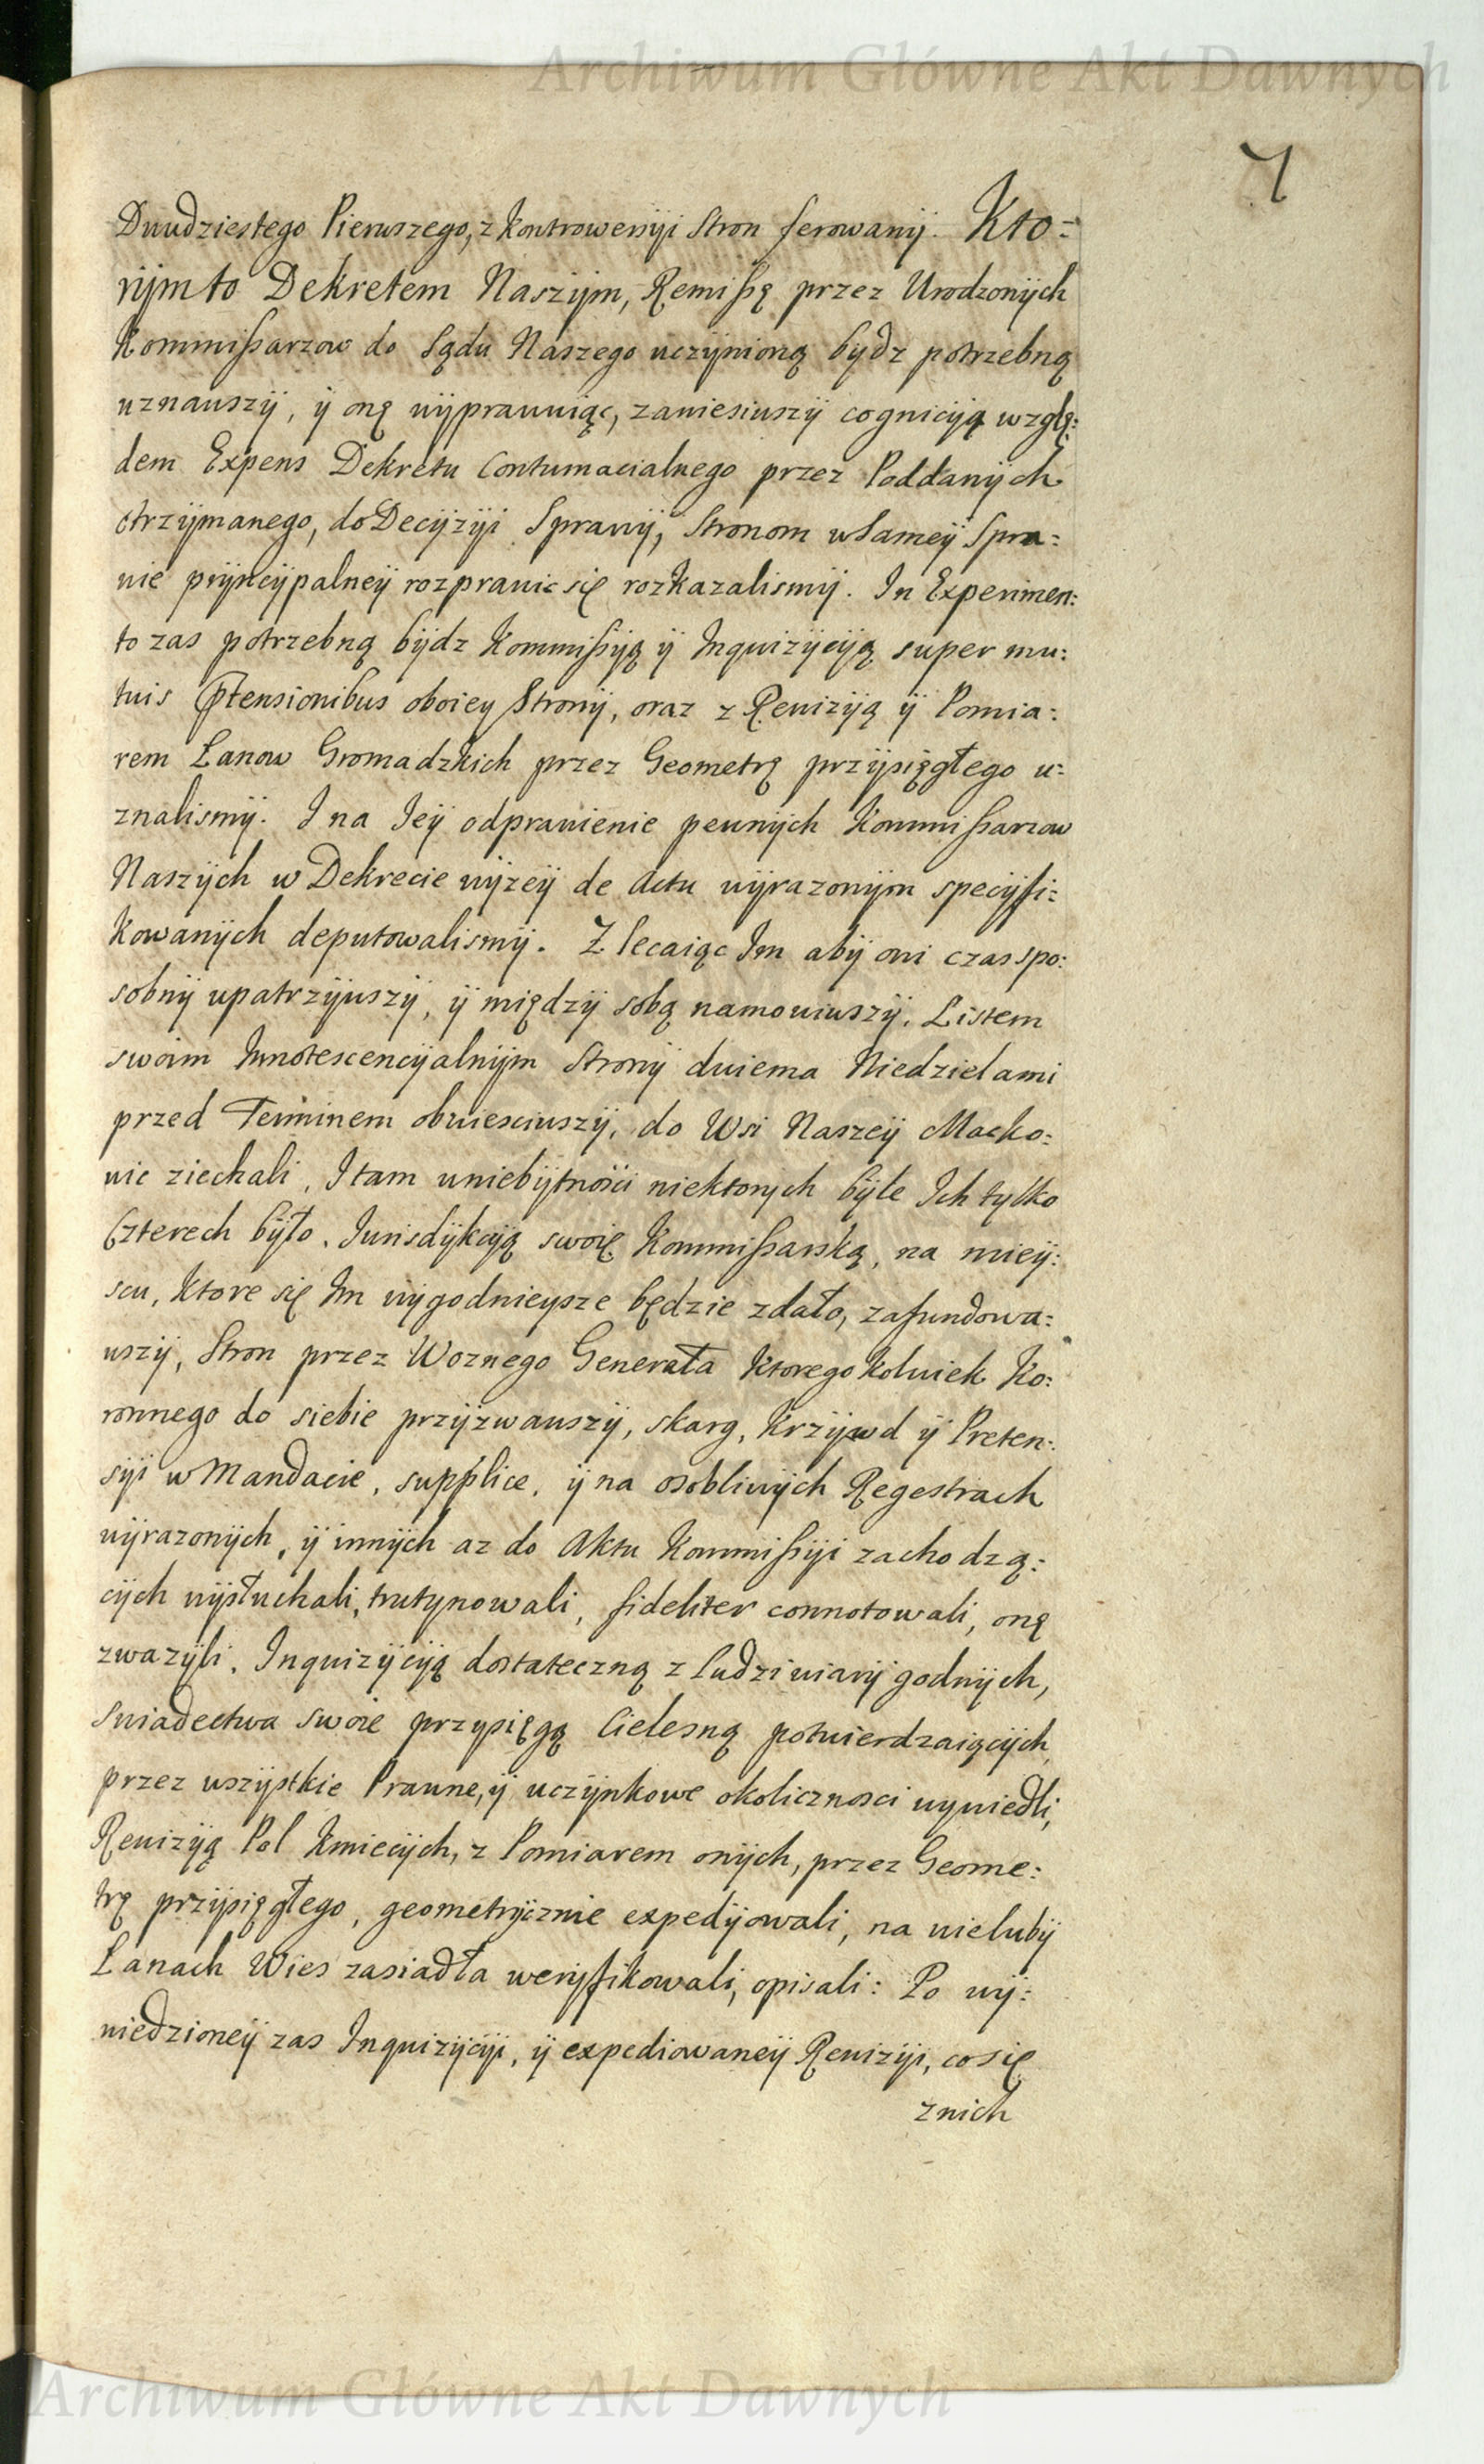 Archiwum Główne Akt Dawnych
7
Dwudziestego Pierwszego, z kontrowersyi Stron ferowany. Kto=
rym to Dekretem Naszym, Remißę przez Urodzonych
Kommißarzow do Sądu Naszego uczynioną bydz potrzebną
uznawszy, y onę wyprawuiąc, zawiesiwszy cognicyą wzglę:
dem Expens Dekretu Contumacialnego przez Poddanych
otrzymanego, do Decyzyi Sprawy, Stronom w Samey Spra=
wie pryncypalney rozprawic się rozkazalismy. In Experimen:
to zas potrzebną bydz Kommißyą y Inquizycyą super mu:
tuis Ptensionibus oboiey Strony, oraz z Rewizyą y Pomia:
rem Łanow Gromadzkich przez Geometrę przysięgłego u=
znalismy. I na Iey odprawienie pewnych Kommißarzow
Naszych w Dekrecie wyzey de Actu wyrazonym specyfi=
kowanych deputowalismy. Zlecaiąc Im aby oni czas spo:
sobny upatrzywszy, y między sobą namowiwszy, Listem
swoim Innotescencyalnym Strony dwiema Niedzielami
przed Terminem obwiesciwszy, do Wsi Naszey Macko=
wic ziechali, I tam w niebytnosci niektorych byle Ich tylko
Czterech było. Jurisdykcyą swoię Kommißarską, na miey:
scu, ktore się Im wygodnieysze będzie zdało, zafundowa=
wszy, Stron przez Woznego Generała ktoregokolwiek Ko:
ronnego do siebie przyzwawszy, skarg, krzywd y Preten:
syi w Mandacie, supplice, y na osobliwych Regestrach
wyrazonych, y innych az do Aktu Kommißyi zachodzą:
cych wysłuchali, trutynowali, fideliter connotowali, onę
zwazyli. Inquizycyą dostateczną z ludzi wiary godnych,
swiadectwa swoie przysięgą Cielesną potwierdzaiących,
przez wszystkie Prawne, y uczynkowe okolicznosci wywiedli,
Rewizyą Pol Kmiecych, z Pomiarem onych, przez Geome:
trę przysięgłego, geometrycznie expedyowali, na wieluby
Łanach Wies zasiadła weryfikowali, opisali: Po wy:
wiedzioney zas Inquizycyi, y expediowaney Rewizyi, co się
z nich
Archiwum Główne Akt Dawnych